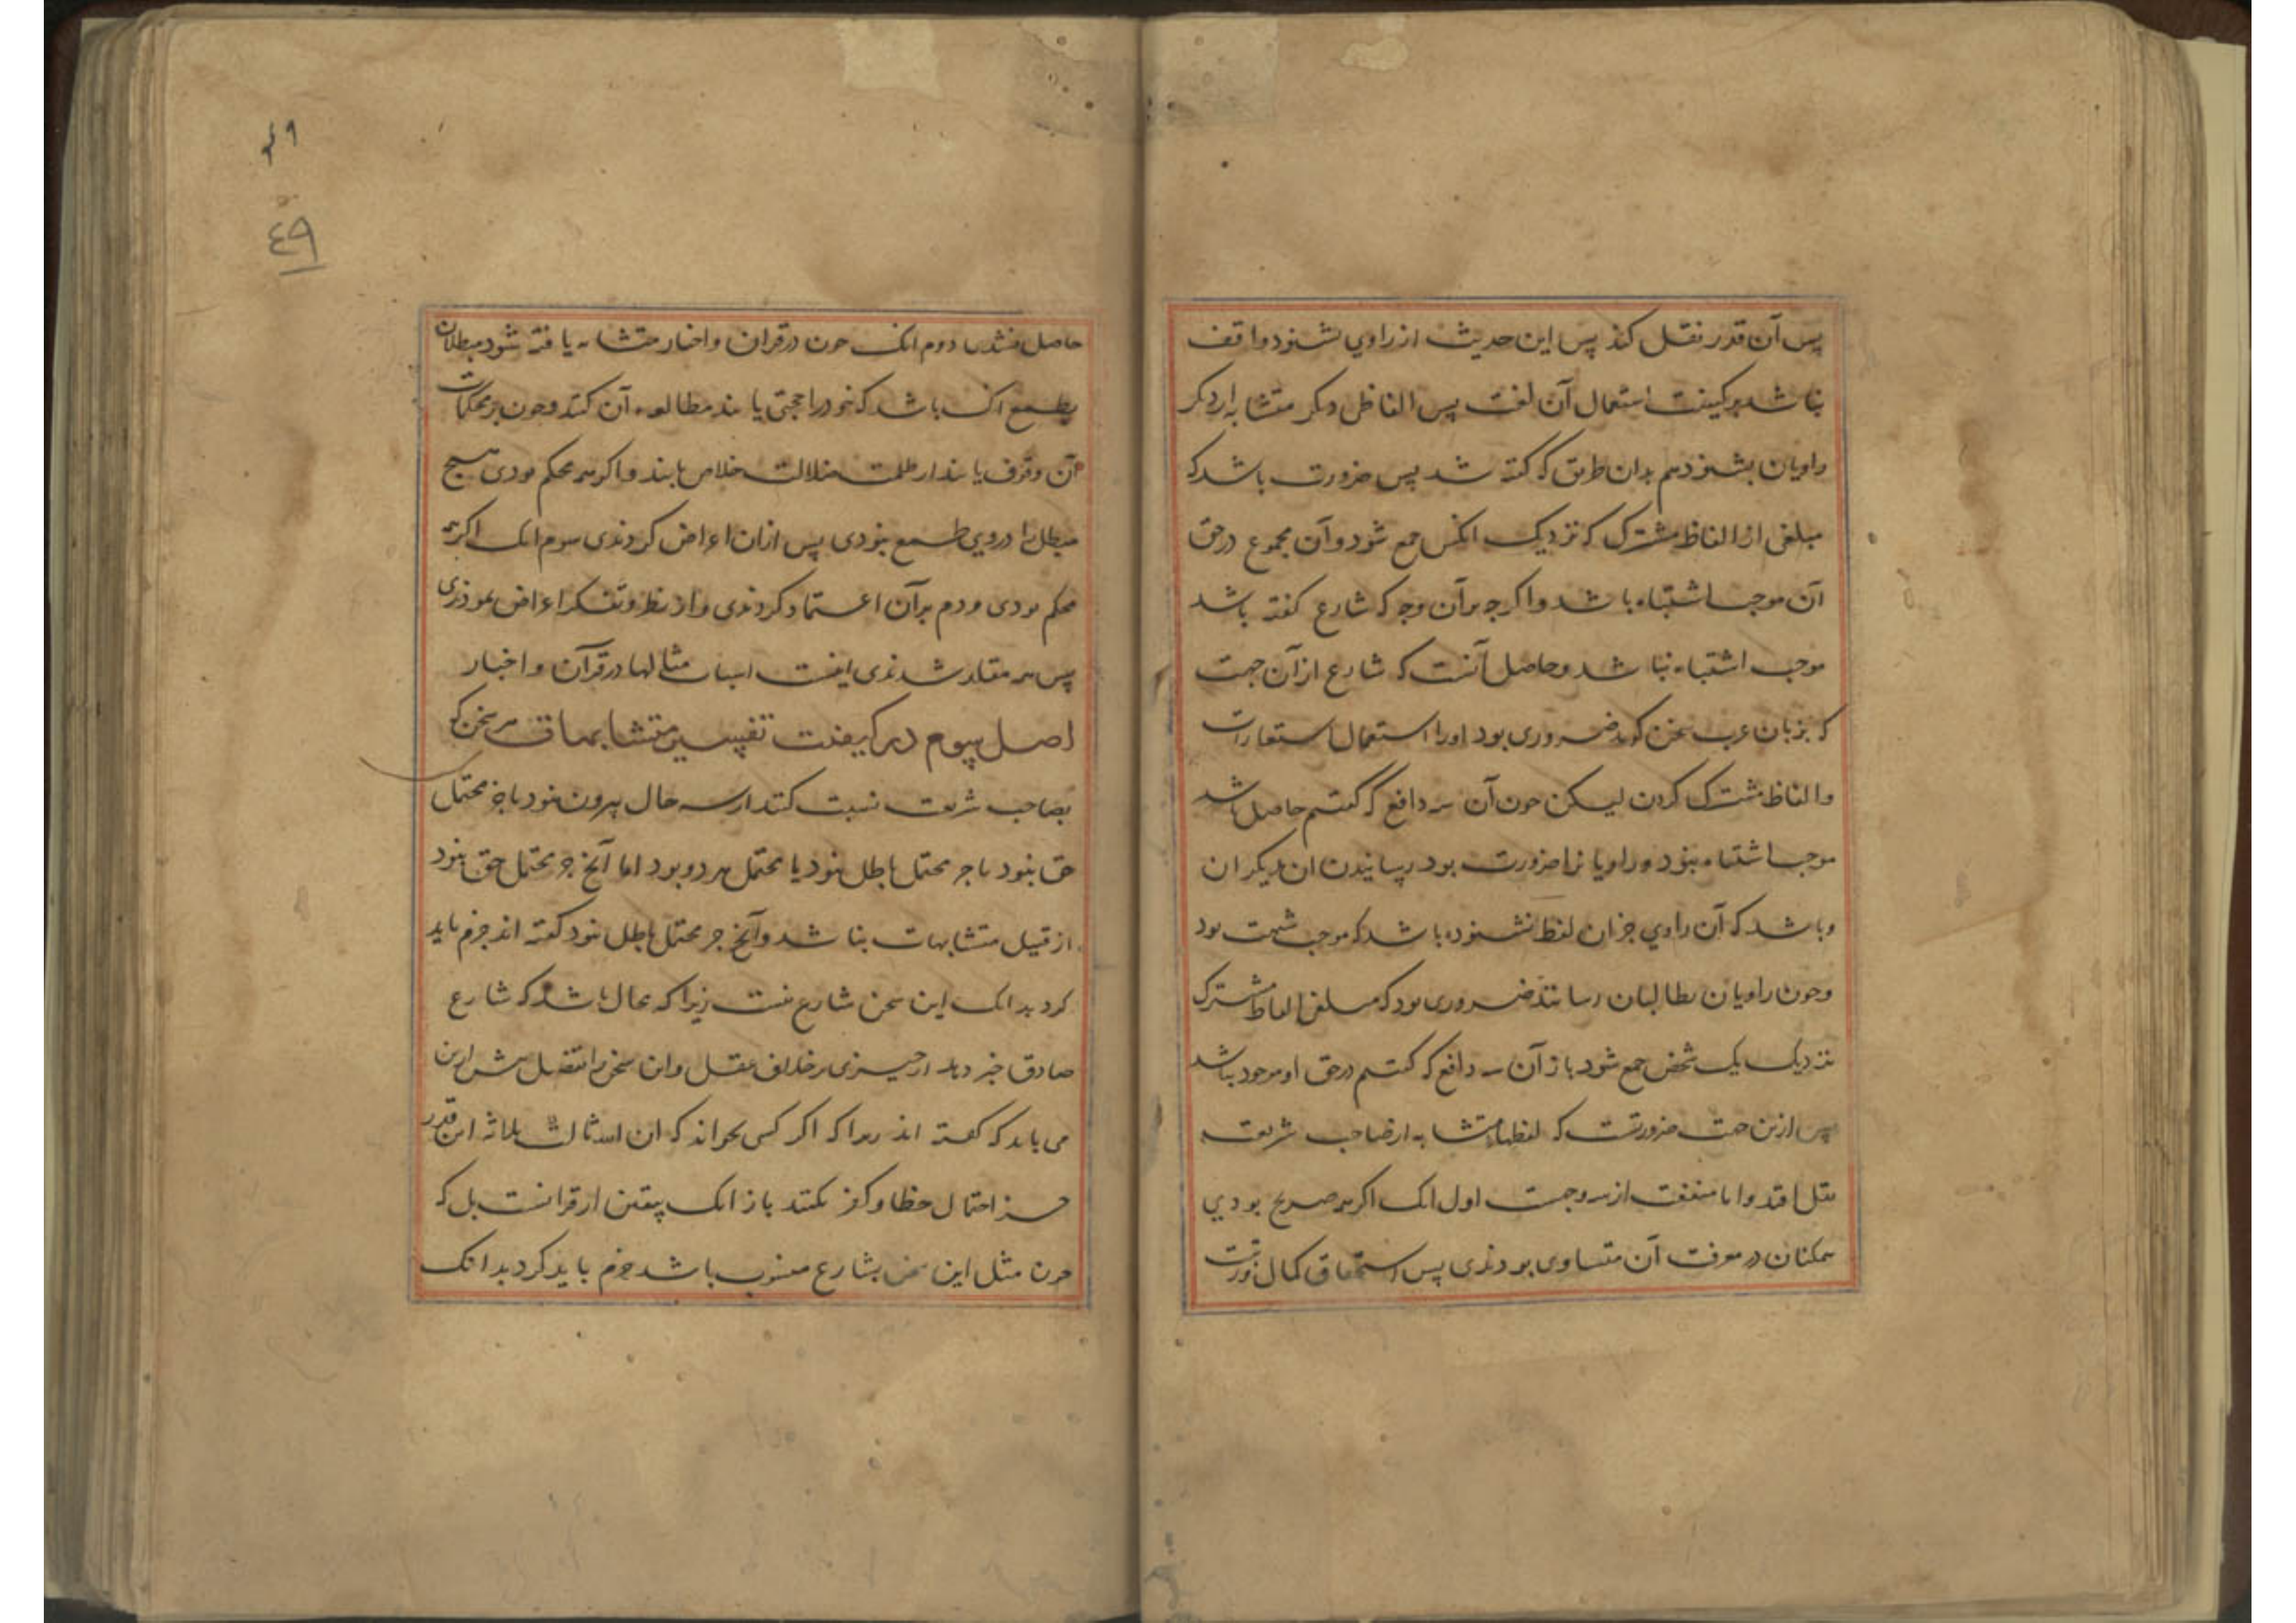 پس آن قدر نقل کند پس این حدیث از راوی بشنود واقف
نباشد بر کیفیت استعمال آن لغت پس الفاظ دیگر متشابه از دیگر
راویان بشنود هم بدان طریق که گفته شد پس ضرورت باشد که
مبلغی از الفاظ مشترک که نزدیک انکس جمع شود و آن مجموع در حق
آن موجب اشتباه باشد و اگرچه بر آن وجه که شارع گفته باشد
موجب اشتباه نباشد و حاصل آنست که شارع از آن جهت
که بزبان عرب سخن گوید ضروری بود اورا استعمال استعارات
و الفاظ مشترک کردن لیکن چون آن سه دافع که گفتیم حاصل باشد
موجب اشتباه نبود و راویانرا ضرورت بود رسانیدن ان بدیگران
و باشد که آن راوی جز ان لفظ نشنوده باشد که موجب شبهت بود
و چون راویان بطالبان رسانند ضروری بود که مبلغی الفاظ مشترک
نزدیک یک شخص جمع شود باز آن سه دافع که گفتیم در حق او موجود نباشد
پس ازین جهت ضرورتست که لفظهاء متشابه از صاحب شریعت
نقل افتد و اما منفعت از سه وجهست اول انک اگر همه صریح بودی
همکنان در معرفت آن متساوی بودندی پس استحقاق کمال
٤٩
٤٩
حاصل دوم انک چون در قران و اخبار متشابه یافته شود مبطلان
بطمع انک باشد که خود را حجتی یابند مطالعه آن کنند و چون بر محکمات
آن وقوف یابند از ظلمت ضلالت خلاص یابند و اگر همه محکم بودی هیچ
مبطل را در وی طمع نبودی پس ازان اعراض کردندی سوم انک اگر همه
محکم بودی مردم بر آن اعتماد کردندی و از نظر و تفکر اعراض نمودندی
پس همه مقلد شدندی اینست اسباب مثالها در قرآن و اخبار
اصل سوم در کیفیت تفسیر متشابهات هر سخن که
بصاحب شریعت نسبت کنند از سه حال بیرون نبود یا جز محتمل
حق نبود یا جز محتمل باطل نبود یا محتمل هر دو بود اما آنچ جز محتمل حق نبود
از قبیل متشابهات نباشد و آنچ جز محتمل باطل نبود گفته اند جزم باید
کرد بدانک این سخن شارع نیست زیرا که محال باشد که شارع
صادق خبر دهد از چیزی بر خلاف عقل و این سخن را تفصیل بیش ازین
می باید که گفته اند زیرا که اگر کسی بخواند که ان الله ثالث ثلاثه این قدر
جز احتمال خطا و کفر نکند باز انک بیقین از قرانست بل که
چون مثل این سخن بشارع منسوب باشد جزم باید کرد بدانک